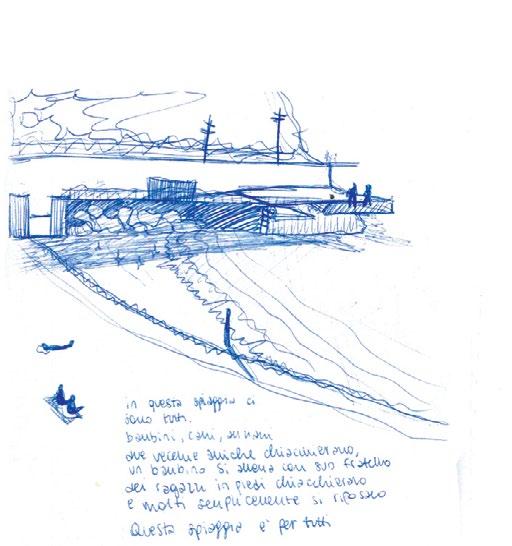 in questa spiaggia ci
sono tutti.
bambini, cani, anziani
due vecchie amiche chiacchierano,
un bambino si allena con suo fratello
dei ragazzi in piedi chiacchierano
e molti semplicemente si riposano
Questa spiaggia è per tutti